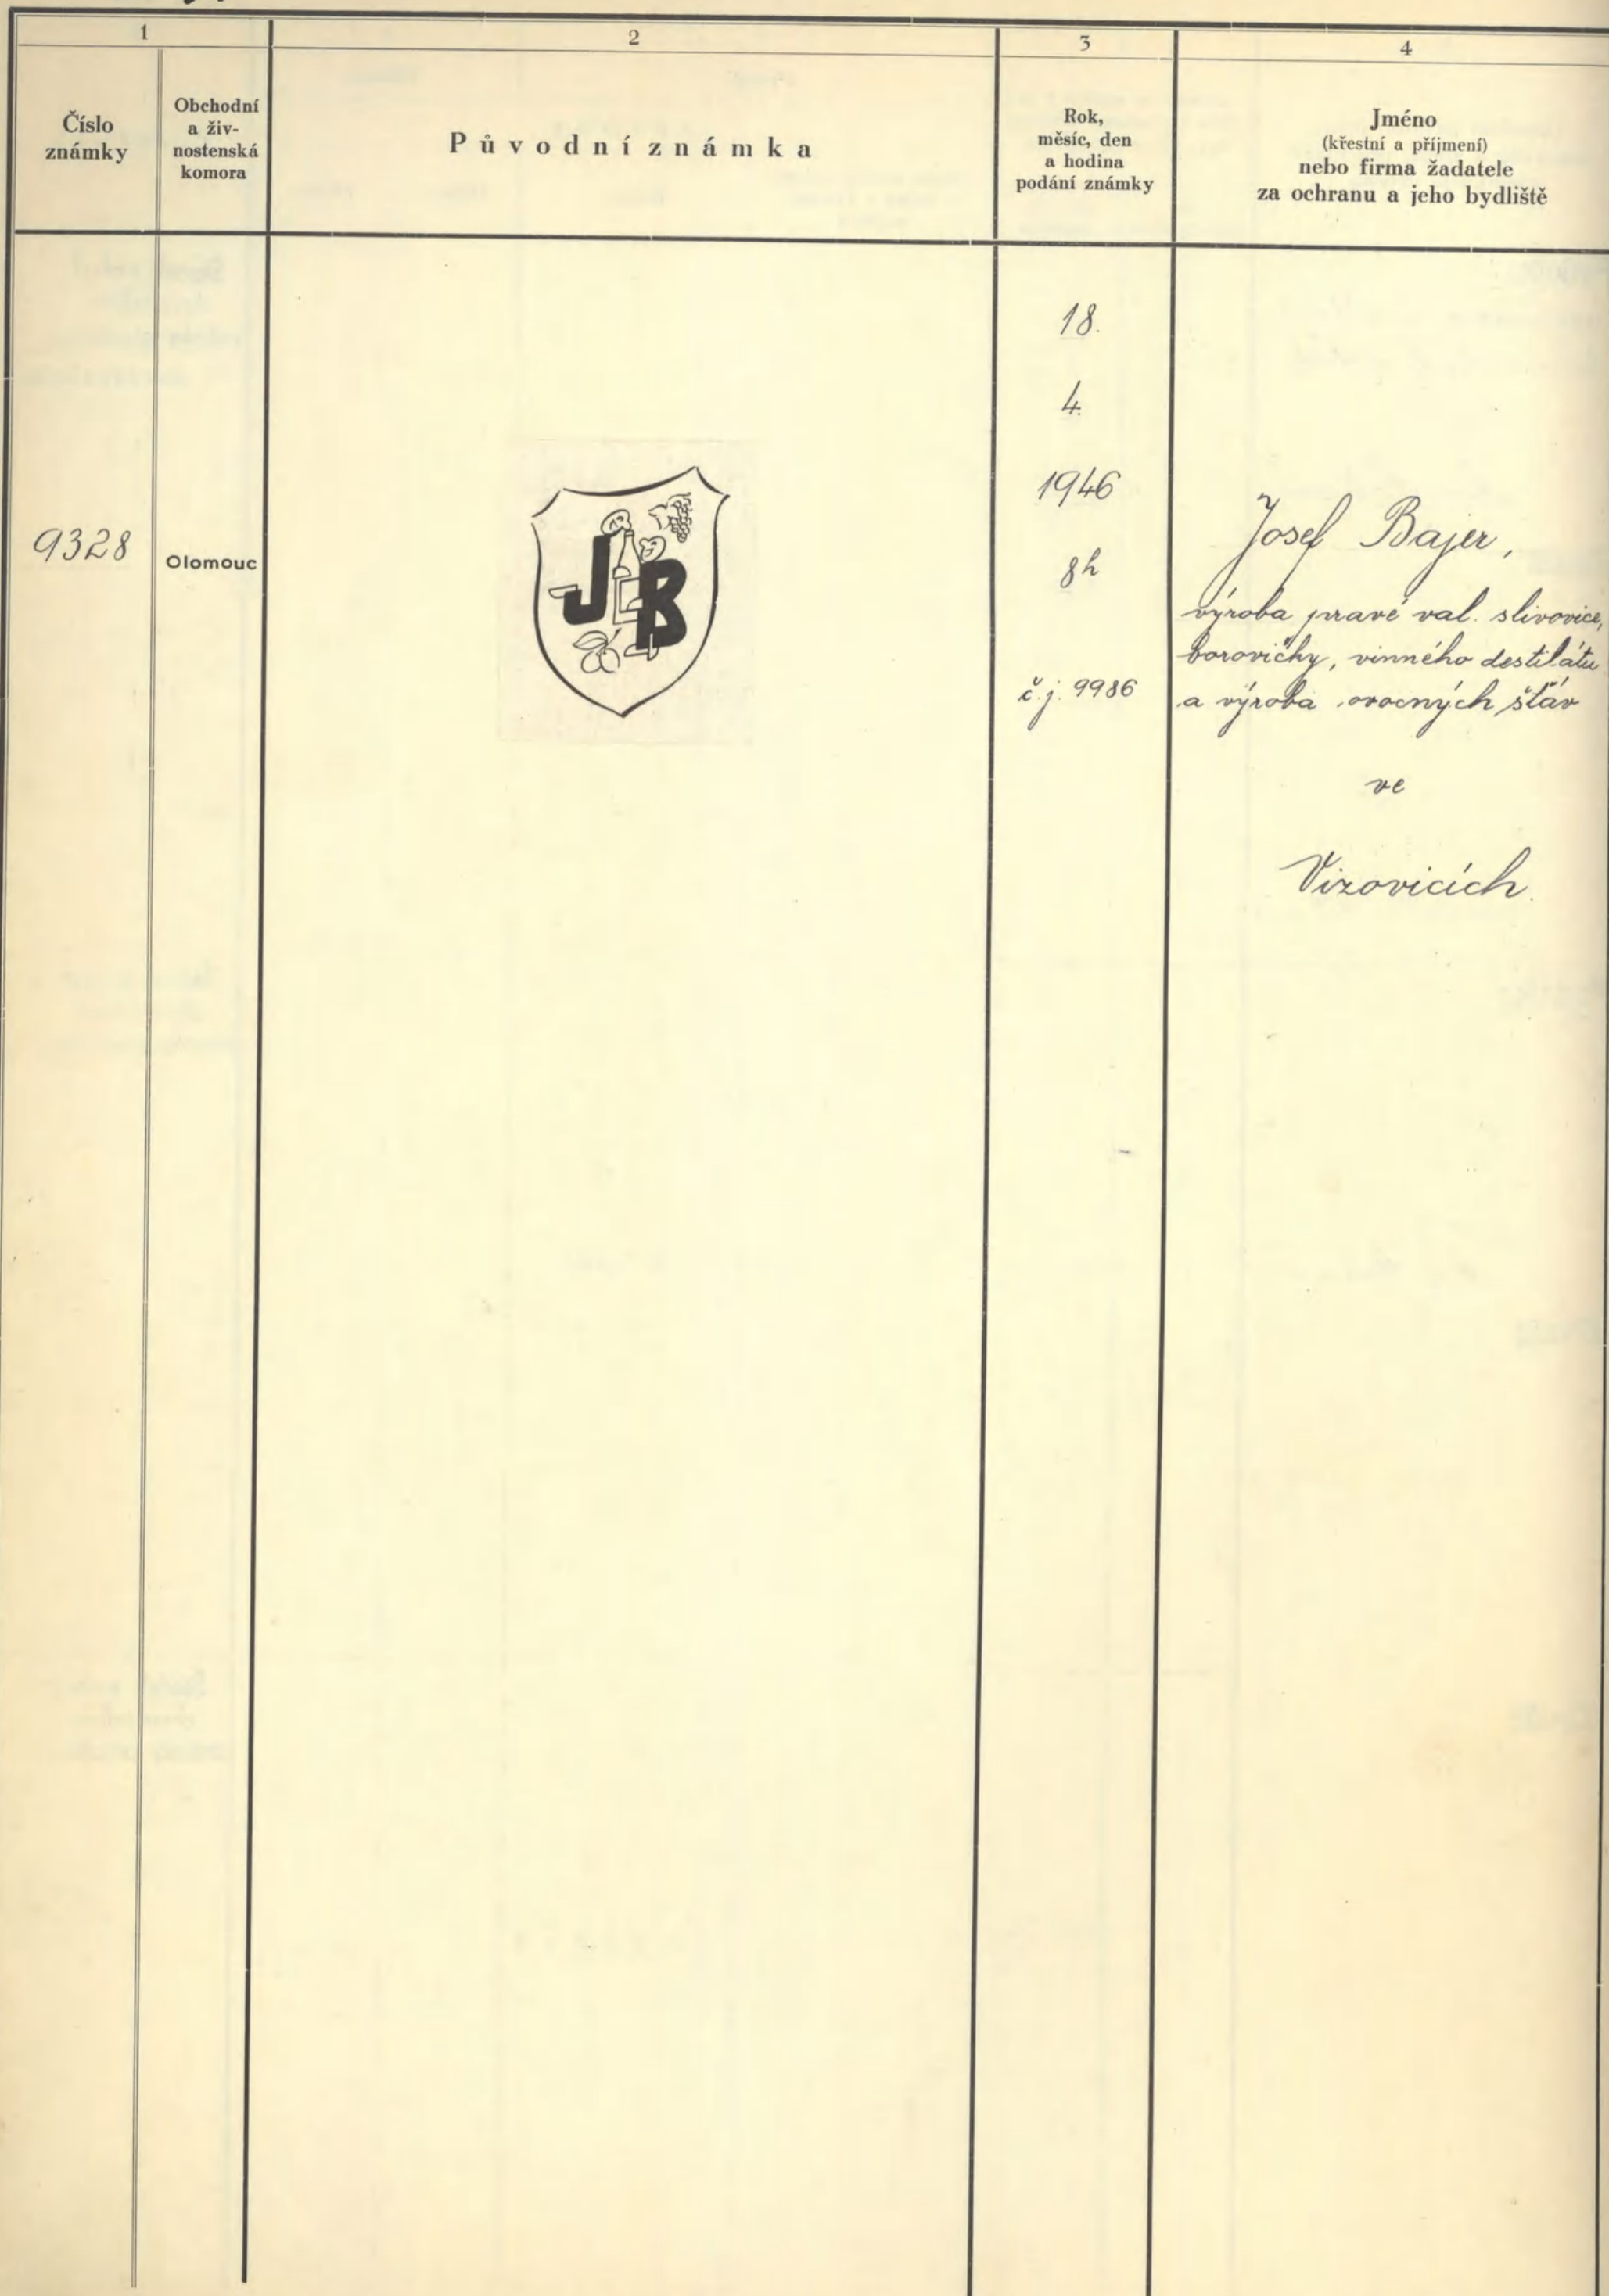 1
2
3
4
Číslo
známky
Obchodní
a živ-
nostenská
komora
Původní známka
Rok,
měsíc, den
a hodina
podání známky
Jméno
(křestní a příjmení)
nebo firma žadatele
za ochranu a jeho bydliště
9328
Olomouc
JB
18.
4.
1946
8h
č.j. 9986
Josef Bajer,
výroba pravé val. slivovice,
borovičky, vinného destilátu
a výroba ovocných šťáv
ve
Vizovicích.